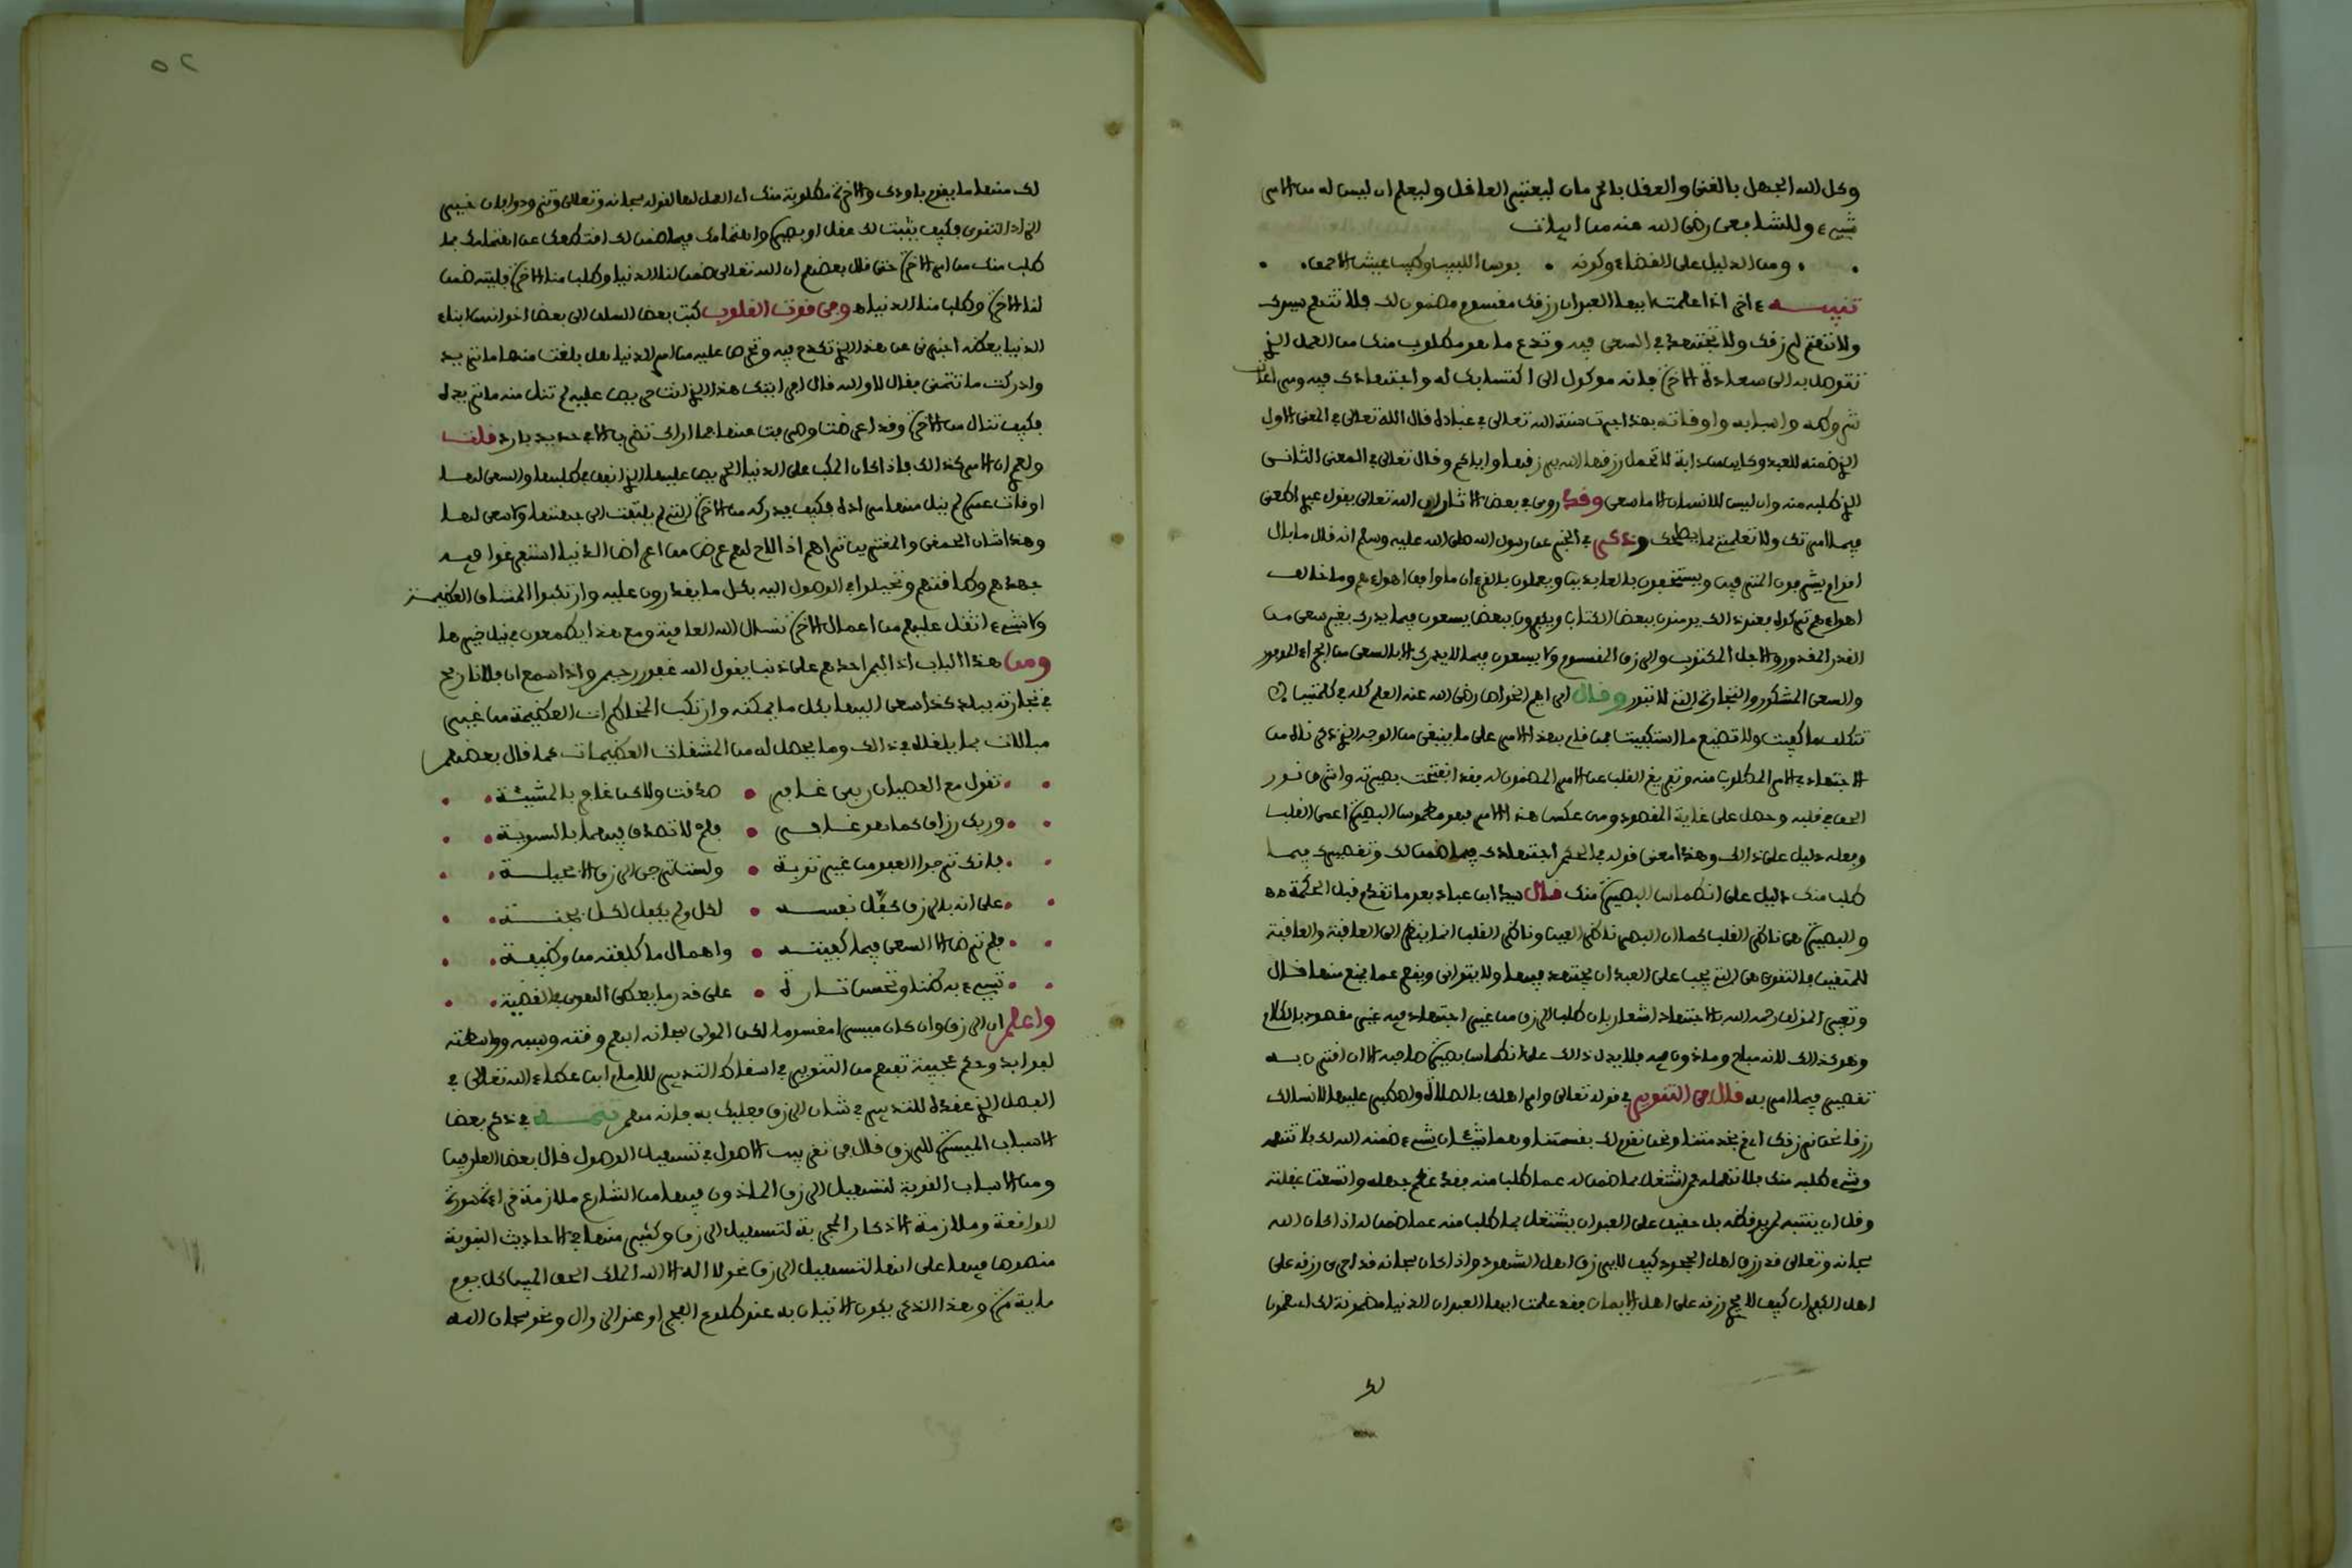 وكل الله الجهل بالغنى والعقل بالحرمان ليعتبر العاقل وليعلم ان ليس له من الامر
شيء وللشافعي رضي الله عنه من ابيات
ومن الدليل على القضاء وكونه • بوس اللبيب وطيب عيش الاحمق
تنبيه اخي اذا علمت ايها العبد ان رزقك مقسوم مضمون لك فلا تتعب سرك
ولا تهتم لرزقك ولا تجتهد في السعي فيه وتدع ما هو مطلوب منك من العمل الذي
تتوصل به الى سعادة الاخرة فانه موكول الى اكتسابك له واجتهادك فيه ومراعات
شروطه واسبابه واوقاته بهذا جرت سنة الله تعالى في عباده قال الله تعالى في المعنى الاول
الذي ضمنه للعبد وكاين من دابة لا تحمل رزقها الله يرزقها واياكم وقال تعالى في المعنى الثاني
الذي طلبه منه وان ليس للانسان الا ما سعى وقد روي في بعض الاثار ان الله تعالى يقول عبدي اطعني
فيما امرتك ولا تعلمني بما يصلحك وذكر في الخبر عن رسول الله صلى الله عليه وسلم انه قال ما بال
اقوام يشرفون المترفين ويستخفون بالعابدين ويعملون بالقرءان ما وافق اهواءهم وما خالف
اهواءهم تركوه فعند ذلك يومنون ببعض الكتاب ويكفرون ببعض يسعون فيما يدرك بغير سعي من
القدر المقدور والاجل المكتوب والرزق المقسوم ولا يسعون فيما لا يدرك الا بالسعي من الجزاء الموفور
والسعي المشكور والتجارة التي لا تبور وقال ابراهيم الخواص رضي الله عنه العلم كله في كلمتين لا
تتكلف ما كفيت ولا تضيع ما استكفيت فمن قام بهذا الامر على ما ينبغي من الوجه الذي ذكرناه من
الاجتهاد في الامر المطلوب منه وتفريغ القلب عن الامر المضمون له فقد انفتحت بصيرته واشرق نور
الحق في قلبه وحصل على غاية المقصود ومن عكس هذا الامر فهو مطموس البصيرة اعمى القلب
وفعله دليل على ذلك وهذا معنى قوله في الحكم اجتهادك فيما ضمن لك وتقصيرك فيما
طلب منك دليل على انطماس البصيرة منك قال سيدي ابن عباد بعد ما تقدم قبل الحكمة
والبصيرة هي ناظر القلب كما ان البصر ناظر العين وناظر القلب انما ينظر الى العاقبة والعاقبة
للمتقين فالتقوى هي التي يجب على العبد ان يجتهد فيها ولا يتوانى ويقصر عما يمنع منها قال
وتعبير المولف رحمه الله بالاجتهاد اشعار بان طلب الرزق من غير اجتهاد فيه غير مقصود بالكلام
وهو كذلك لانه مباح وماذون فيه فلا يدل ذلك على انطماس بصيرة صاحبه الا ان اقترن به
تقصير فيما امر به قال في التنوير في قوله تعالى وامر اهلك بالصلاة واصطبر عليها لا نسالك
رزقا نحن نرزقك اي قم بخدمتنا ونحن نقوم لك بقسمتنا وهما شيئان شيء ضمنه الله لك فلا تتهمه
وشيء طلبه منك فلا تهمله فمن اشتغل بما ضمن له عما طلب منه فقد عظم جهله واتسعت غفلته
وقل ان ينتبه لمن يوقظه بل حقيق على العبد ان يشتغل بما طلب منه عما ضمن له اذا كان الله
سبحانه وتعالى قد رزق اهل الجحود كيف لا يرزق اهل الشهود واذا كان سبحانه قد اجرى رزقه على
اهل الكفران كيف لا يجري رزقه على اهل الايمان فقد علمت ايها العبد ان الدنيا مضمونة لك اي مضمون
لك
٥٢
لك منها ما يقوم باودك والاخرة مطلوبة منك اي العمل لها لقوله سبحانه وتعالى وتزودوا فان خير
الزاد التقوى فكيف يثبت لك عقل او بصيرة واهتمامك فيما ضمن لك اقتطعك عن اهتمامك بما
طلب منك من امر الاخرة حتى قال بعضهم ان الله تعالى ضمن لنا الدنيا وطلب منا الاخرة فليته ضمن
لنا الاخرة وطلب منا الدنيا وفي قوت القلوب كتب بعض السلف الى بعض اخوانه من ابناء
الدنيا يعظه اخبرني عن هذا الذي تكدح فيه وتحرص عليه من امر الدنيا هل بلغت منها ما تريد
وادركت ما تتمنى فقال لا والله قال ارايت هذا الذي انت حريص عليه لم تنل منه ما تريد
فكيف تنال من الاخرة وقد اعرضت وصرفت عنها فما اراك تضرب الا في حديد بارد قلت
ولعمري ان الامر كذلك فاذا كان المكب على الدنيا الحريص عليها الذي انفق في طلبها والسعي لها
اوقات عمره لم ينل منها مراده فكيف يدركه من الاخرة التي لم يلتفت الى جهتها ولا سعى لها
وهذا شان الحمقى والمغترين تراهم اذا لاح لهم عرض من اعراض الدنيا استفرغوا فيه
جهدهم وطاقتهم وتحيلوا في الوصول اليه بكل ما يقدرون عليه وارتكبوا المشاق العظيمة
ولا شيء اثقل عليهم من اعمال الاخرة نسال الله العافية ومع هذا يطمعون في نيل خيرها
ومن هذا الباب اذا اليم احدهم على ذنب يقول الله غفور رحيم واذا سمع ان فلانا ربح
في تجارته ببلد كذا سعى اليها بكل ما يمكنه وارتكب المخاطرات العظيمة من غير
مبالات بما يلقاه في ذلك وما يحصل له من المشقات العظيمات كما قال بعضهم
تقول مع العصيان ربي غافر • صدقت ولاكن غافر بالمشيئة
وربك رزاق كما هو غافر • فلم لا تصدق فيهما بالسوية
فانك ترجو العفو من غير توبة • ولست ترجي الرزق الا بحيلة
على انه بالرزق كفل نفسه • لكل ولم يكفل لكل بجنة
فلم ترض الا السعي فيما كفيته • واهمال ما كلفته من وظيفة
تسيء به ظنا وتحسن تارة • على قدر ما يعطي الهوى بالقضية
واعلم ان الرزق وان كان ميسرا مقسوما لكن المولى سبحانه ابهم وقته وسببه وواسطته
لفوايد وحكم عجيبة تفهم من التنوير في اسقاط التدبير للامام ابن عطاء الله تعالى في
الفصل الذي عقده للتدبير في شان الرزق فعليك به فانه مهم تتمة في ذكر بعض
الاسباب الميسرة للرزق قال في تقريب الاصول في تسهيل الوصول قال بعض العارفين
ومن الاسباب القوية لتسهيل الرزق الماذون فيها من الشارع ملازمة قراءة سورة
الواقعة وملازمة الاذكار المجربة لتسهيل الرزق وكثير منها في الاحاديث النبوية
منصوص فيها على انها لتسهيل الرزق نحو لا اله الا الله الملك الحق المبين كل يوم
ماية مرة وهذا الذكر يكون الاتيان به عند طلوع الفجر او عند الزوال ونحو سبحان الله